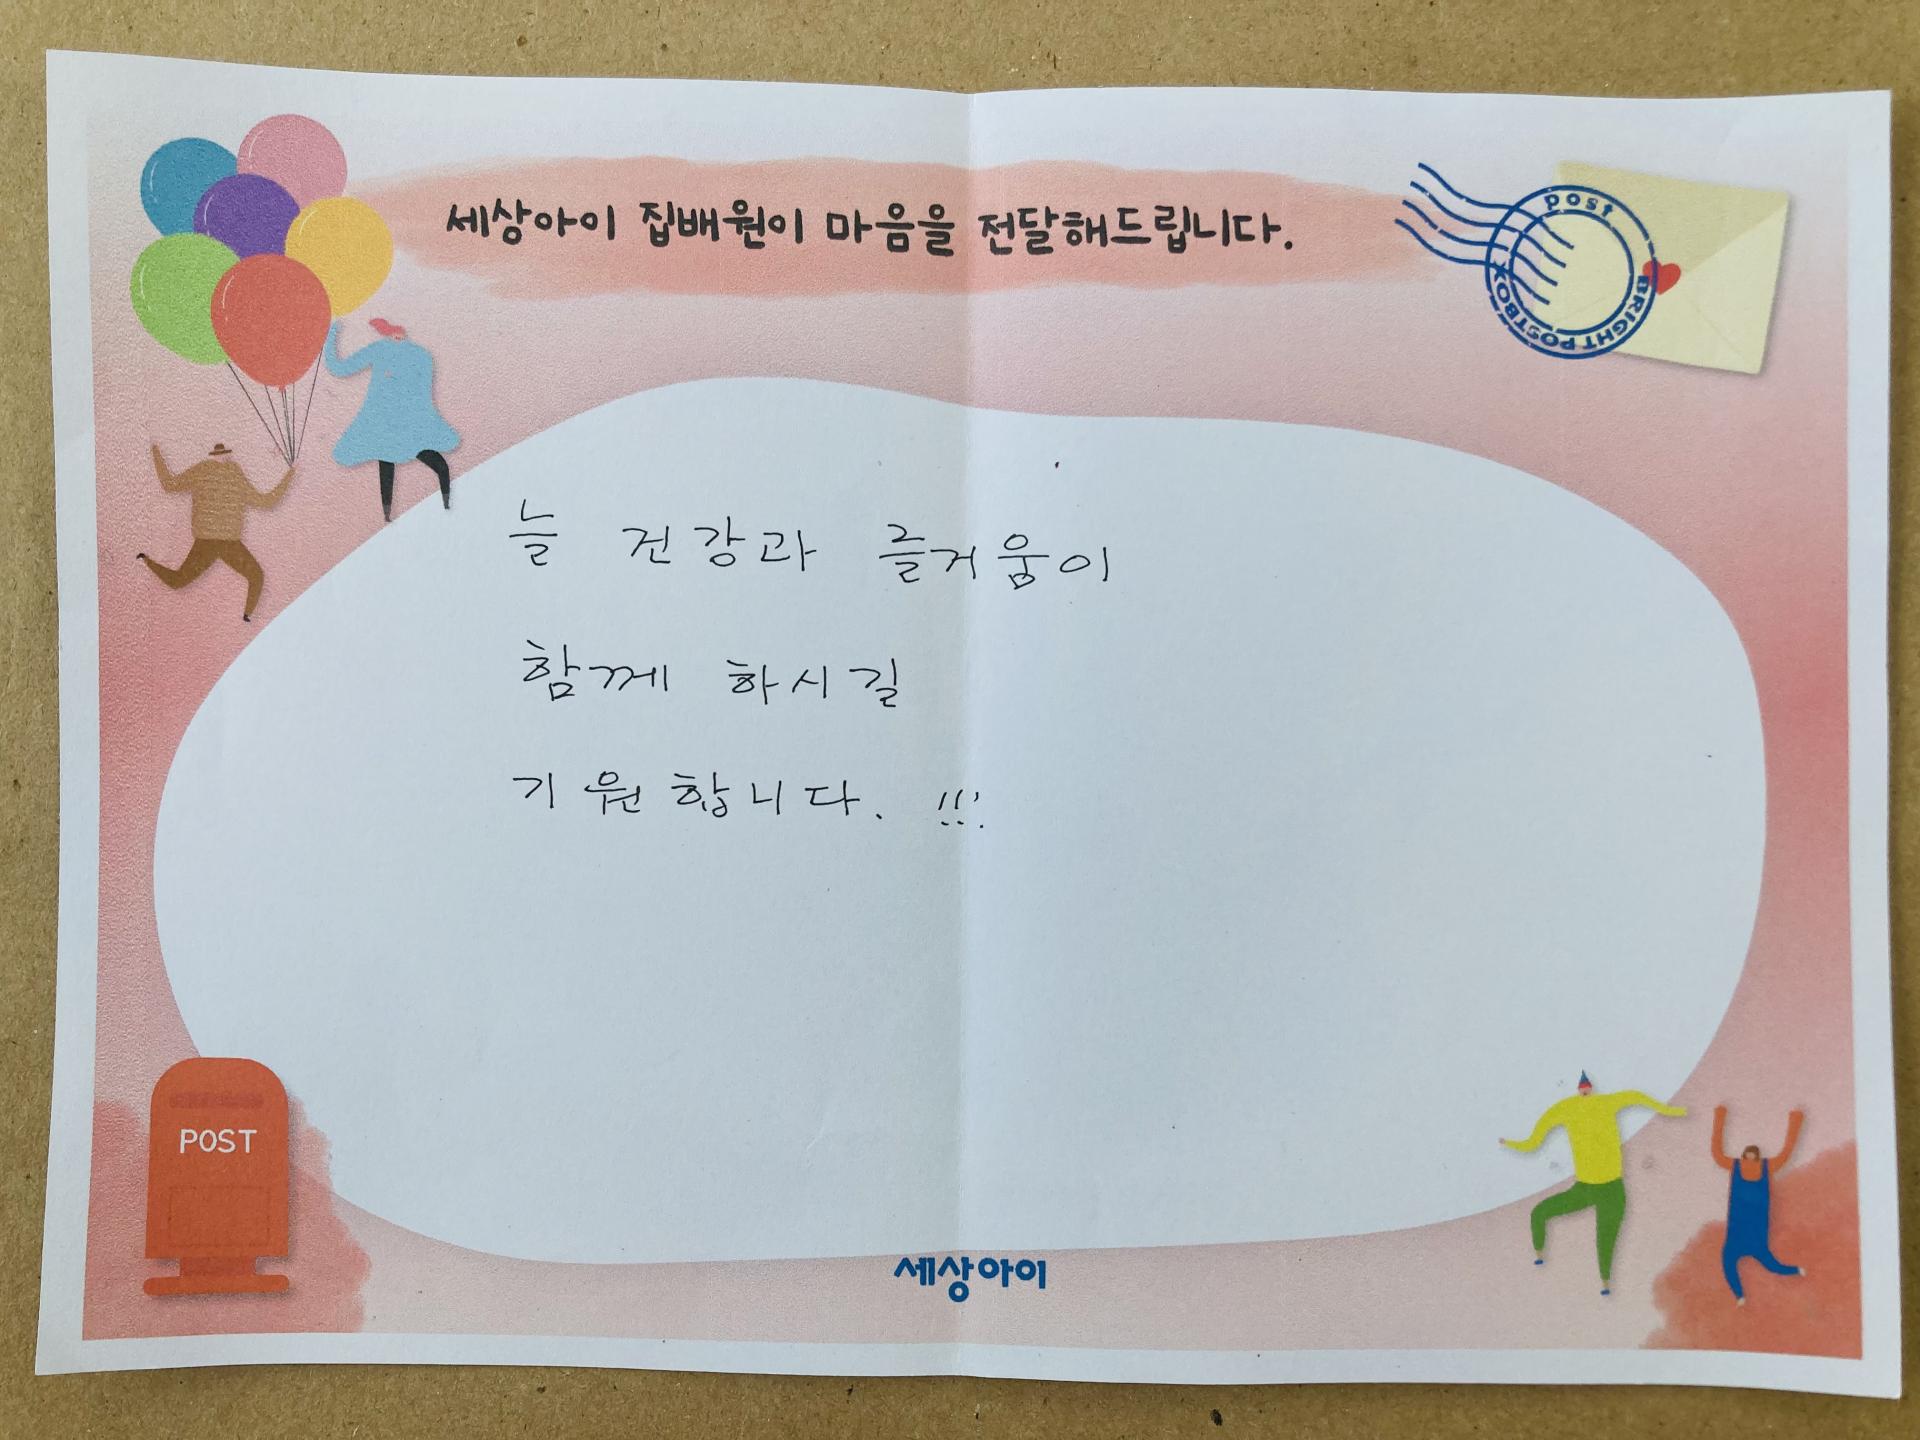 세상아이 집배원이 마음을 전달해드립니다.
post
BRIGHT POSTBOX
늘 건강과 즐거움이
함께 하시길
기원합니다. !!!
POST
세상아이